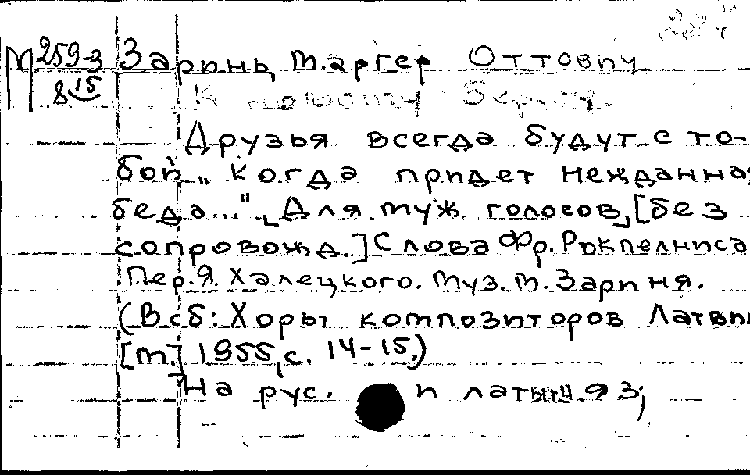 М 259-3 Заринь, Маргер Оттович
8 15
К новому берегу.
Друзья всегда будут с то-
бой „Когда придет нежданная
беда..." Для муж. голосов, [без
сопровожд.] Слова Фр. Рокпелниса
Пер. Я. Халецкого. Муз. М. Зариня.
(В сб: Хоры композиторов Латвии
[м.] 1955, с. 14-15.)
На рус. и латыш. яз;